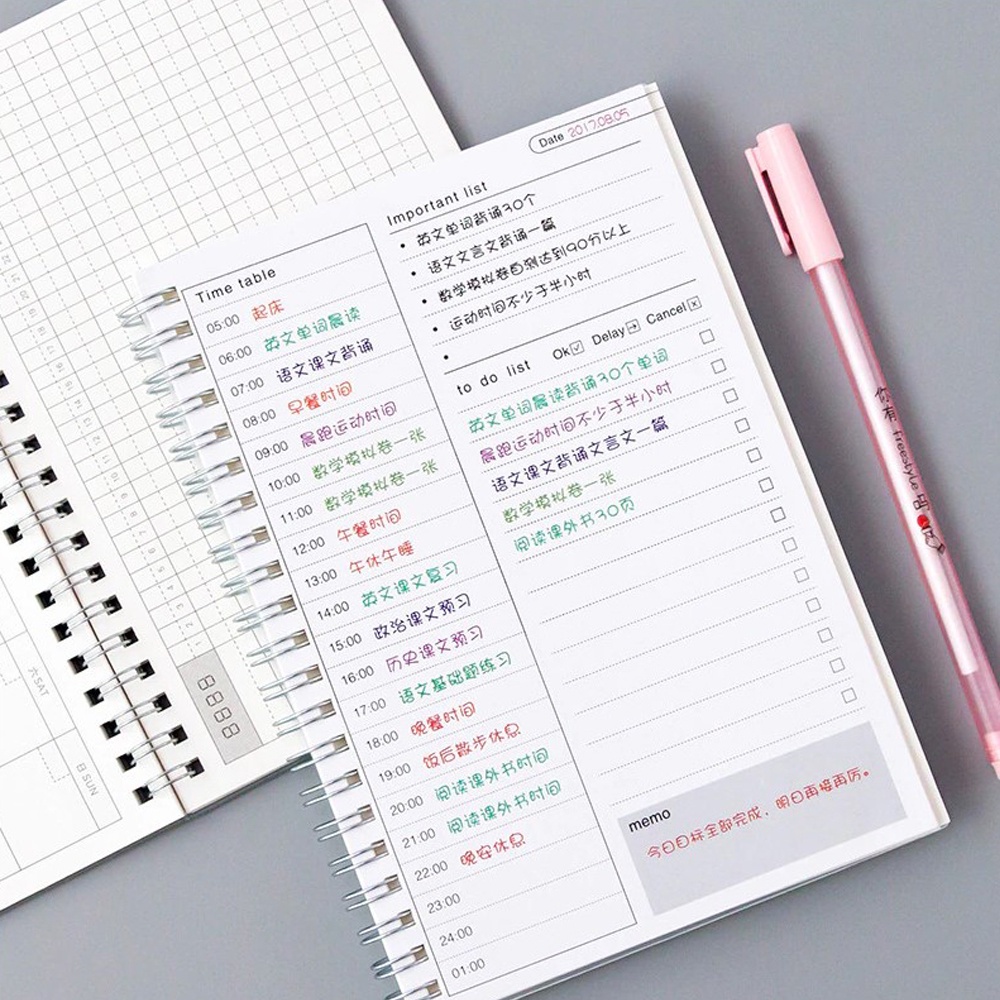 Date 2017.08.05
Important list
• 英文单词背诵30个
• 语文文言文背诵一篇
• 数学模拟卷自测达到90分以上
• 运动时间不少于半小时
•
Time table
05:00 起床
06:00 英文单词晨读
07:00 语文课文背诵
08:00 早餐时间
09:00 晨跑运动时间
10:00 数学模拟卷一张
11:00 数学模拟卷一张
12:00 午餐时间
13:00 午休午睡
14:00 英文课文复习
15:00 政治课文预习
16:00 历史课文预习
17:00 语文基础题练习
18:00 晚餐时间
19:00 饭后散步休息
20:00 阅读课外书时间
21:00 阅读课外书时间
22:00 晚安休息
23:00
24:00
01:00
to do list Ok Delay Cancel
英文单词晨读背诵30个单词
晨跑运动时间不少于半小时
语文课文背诵文言文一篇
数学模拟卷一张
阅读课外书30页
memo
今日目标全部完成,明日再接再厉。
你有freestyle吗
六SAT
日SUN
8888